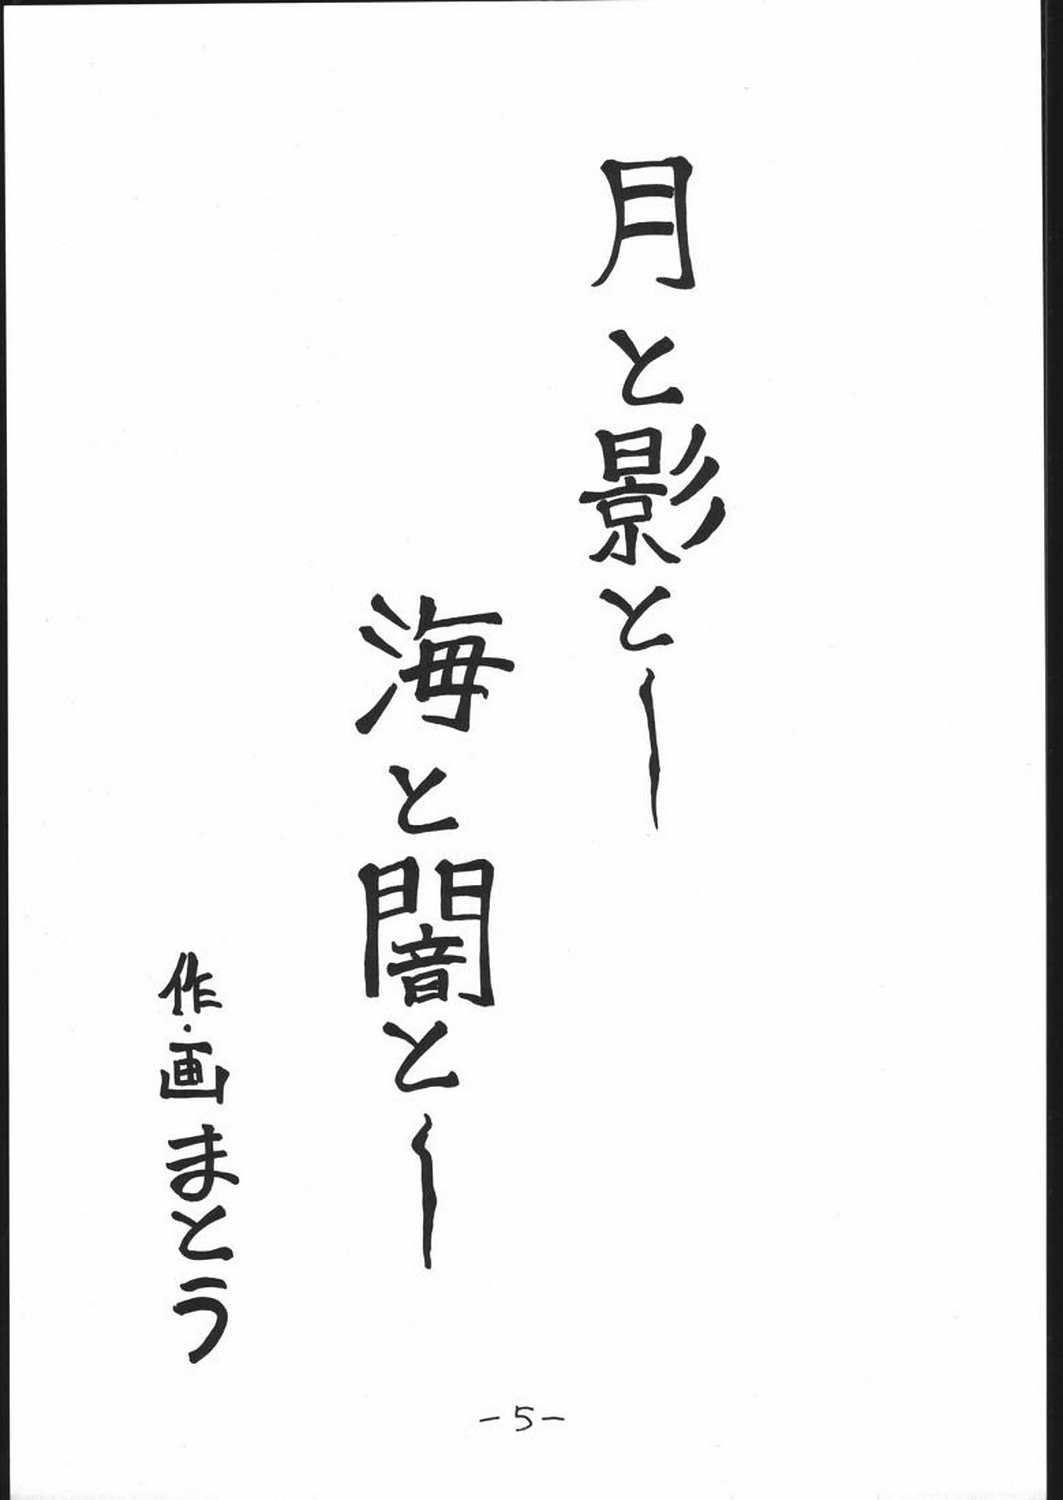 月と影とー
海と闇とー
作・画まとう
-5-